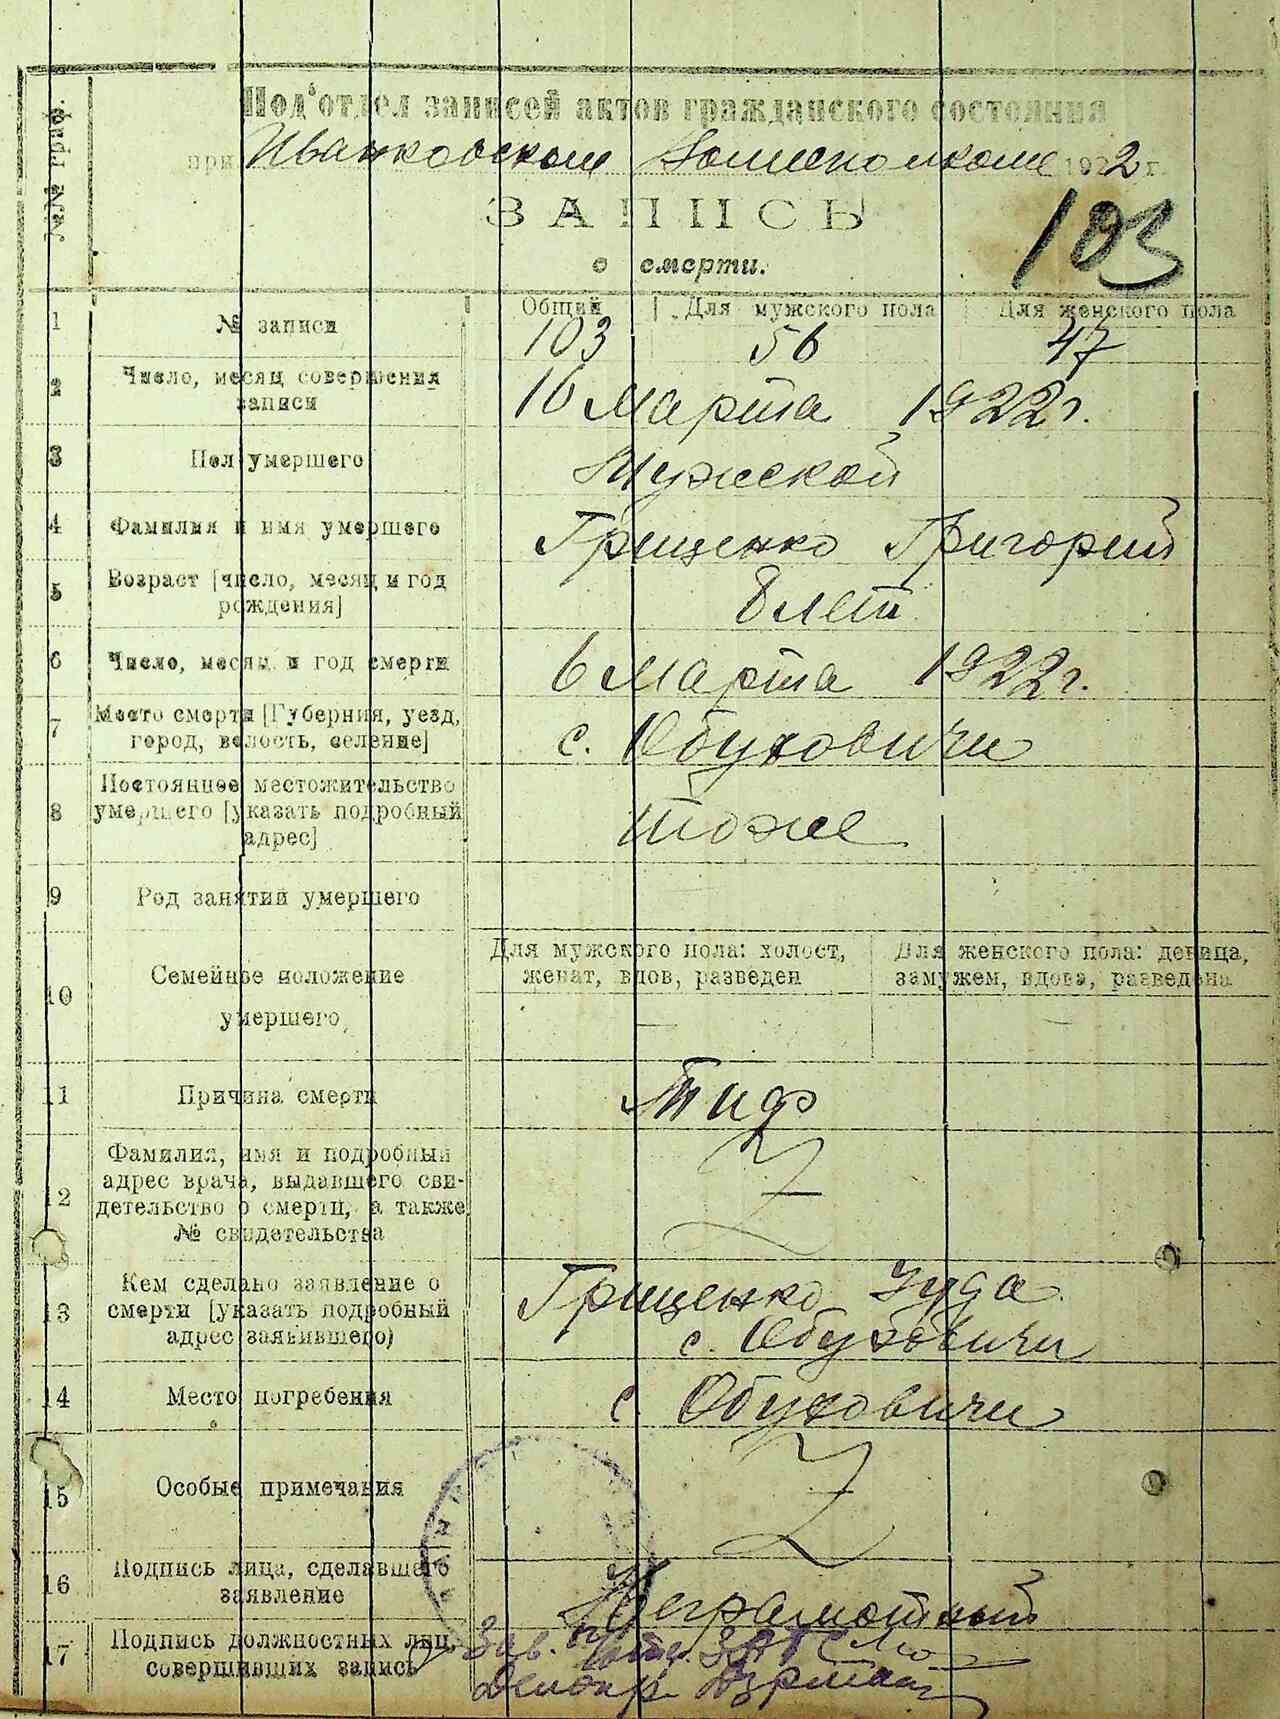 №№ граф.
Под'отдел записей актов гражданского состояния
при Иванковском Волисполкоме 1922 г.
ЗАПИСЬ
103
о смерти.
Общий Для мужского пола Для женского пола
1 № записи 103 56 47
2 Число, месяц совершения
записи 10 Марта 1922 г.
3 Пол умершего Мужской
4 Фамилия и имя умершего Гриценко Григорий
5 Возраст [число, месяц и год
рождения] 8 лет
6 Число, месяц и год смерти 6 Марта 1922 г.
7 Место смерти [Губерния, уезд,
город, волость, селение] с. Обуховичи
8 Постоянное местожительство
умершего [указать подробный
адрес] тоже
9 Род занятий умершего —
Для мужского пола: холост, Для женского пола: девица,
женат, вдов, разведен замужем, вдова, разведена
10 Семейное положение
умершего —
11 Причина смерти Тиф
12 Фамилия, имя и подробный
адрес врача, выдавшего сви-
детельство о смерти, а также
№ свидетельства
13 Кем сделано заявление о
смерти [указать подробный
адрес заявившего) Гриценко Иуда
с. Обуховичи
14 Место погребения с. Обуховичи
15 Особые примечания
16 Подпись лица, сделавшего
заявление Неграмотный
17 Подпись должностных лиц,
совершивших запись Зав. ЗАГС
Делопр.